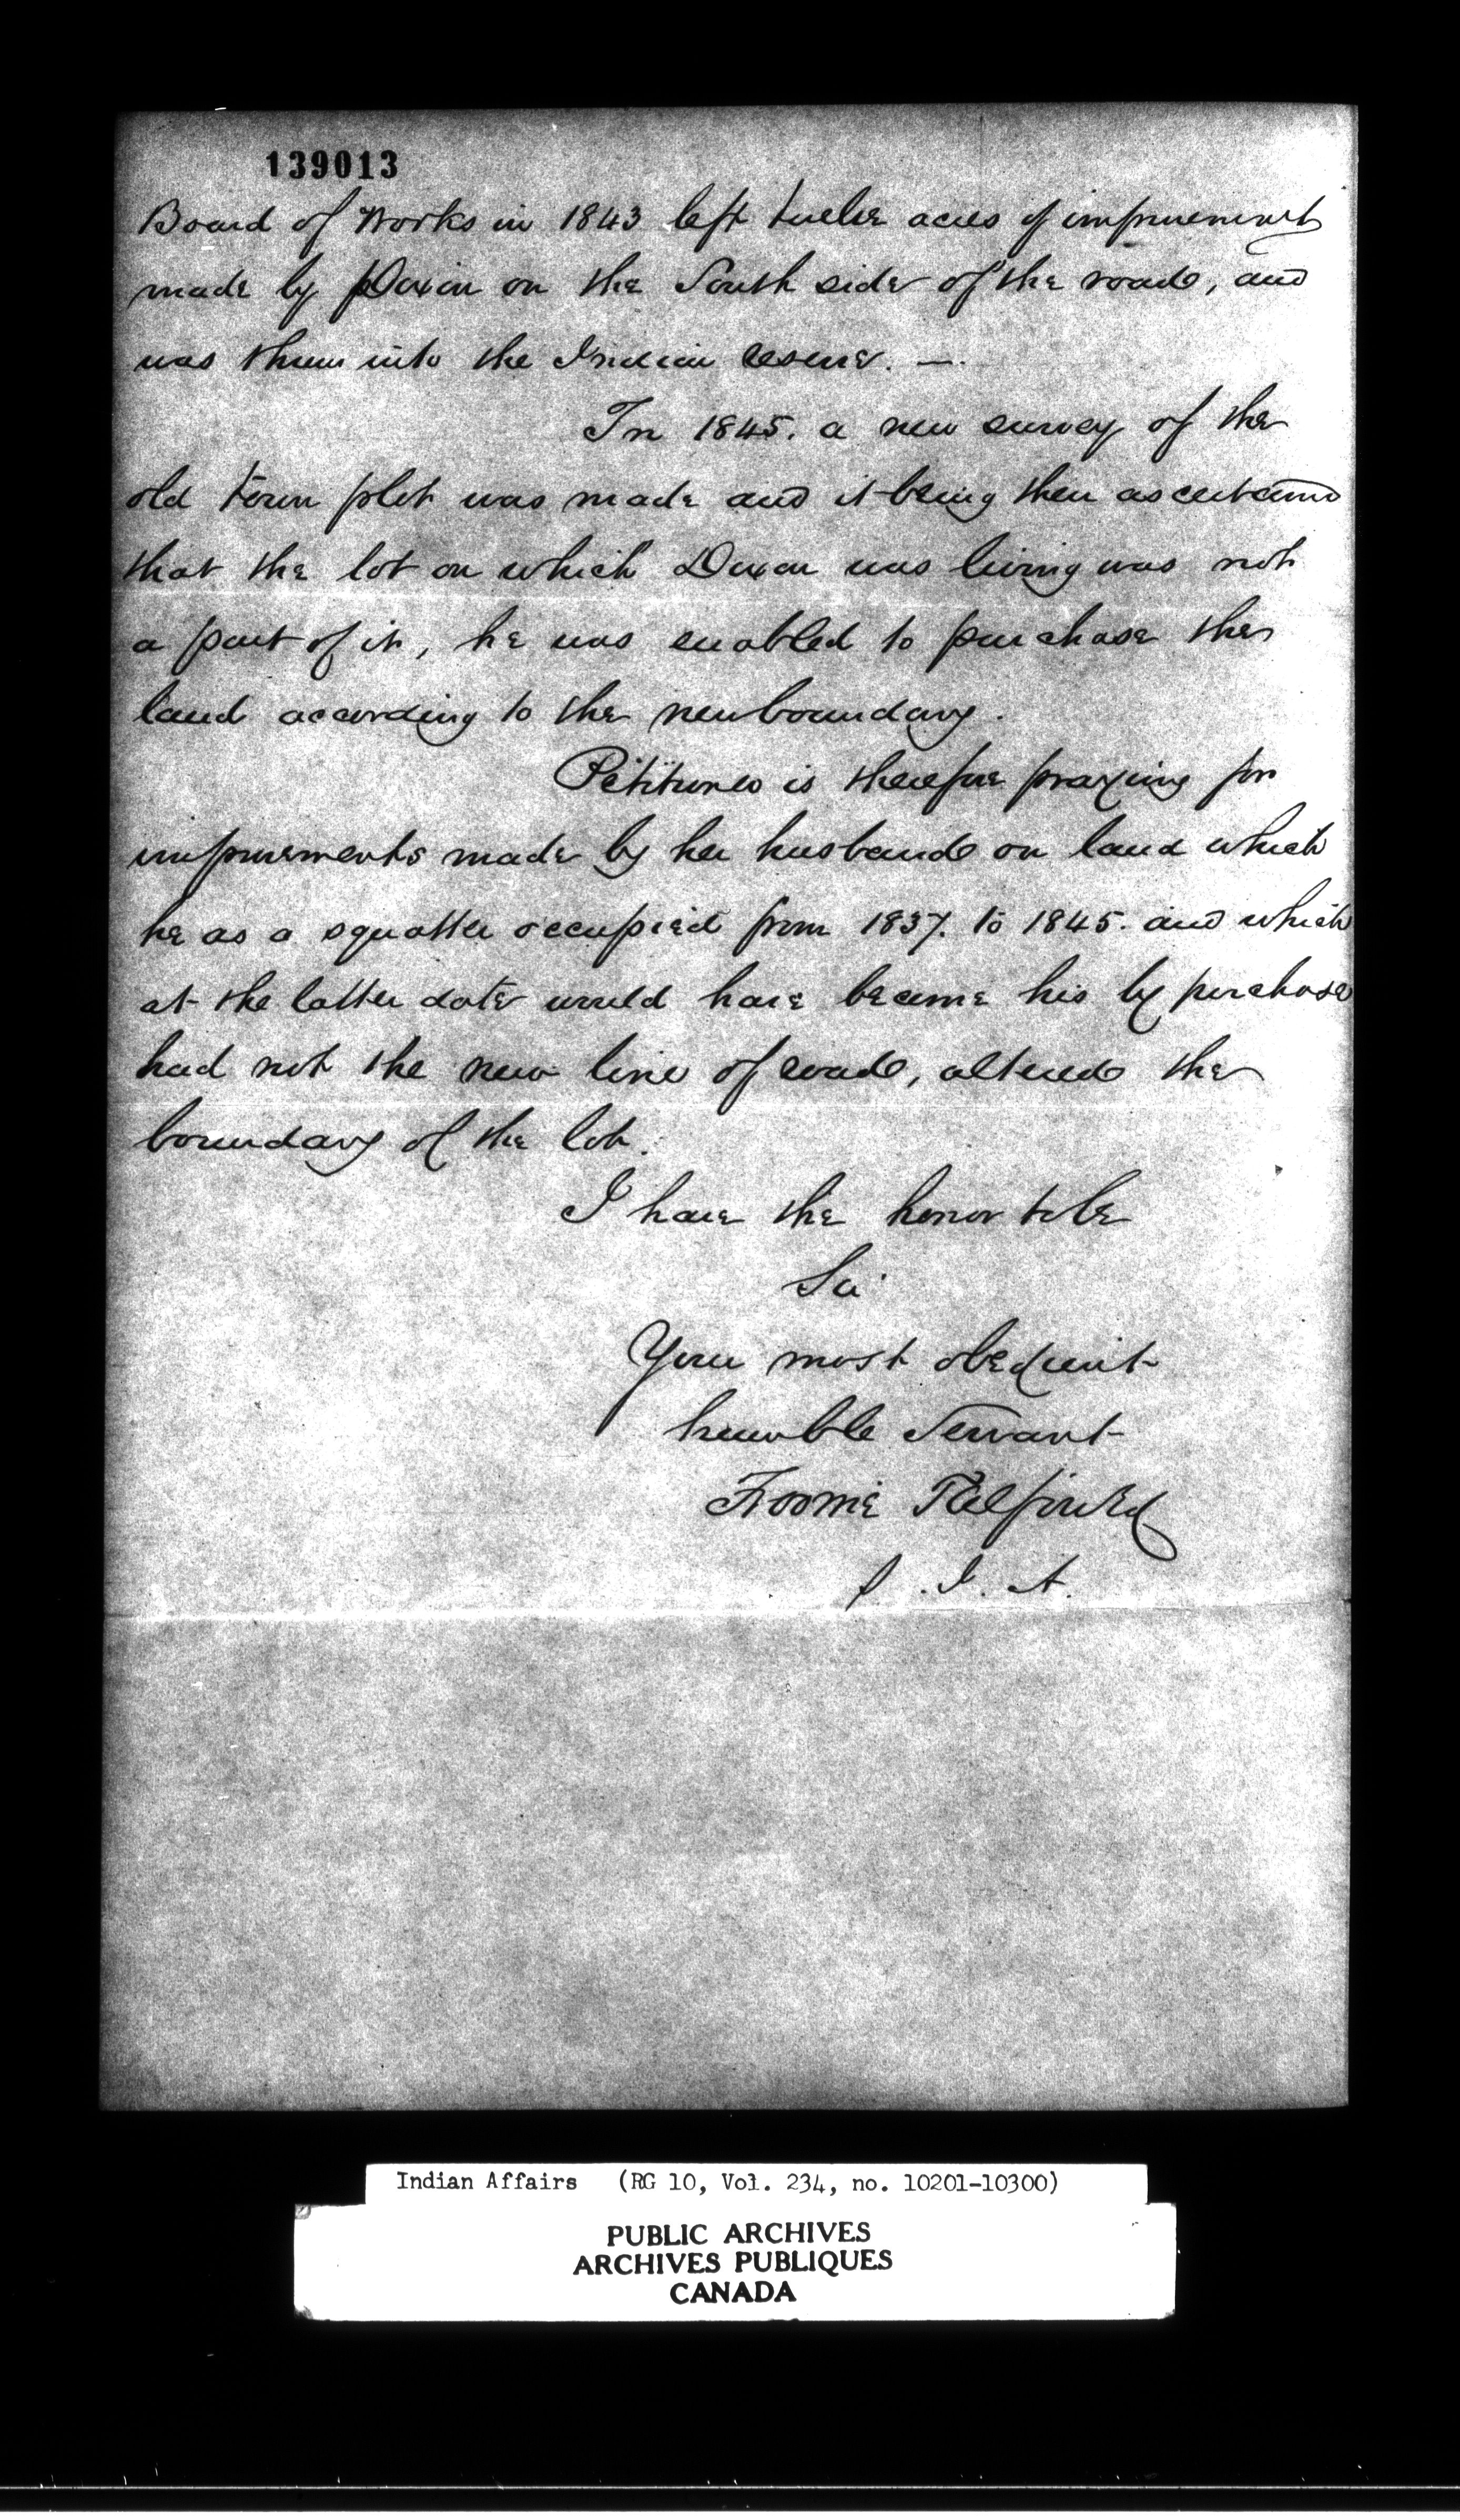 139013
Board of Works in 1843 left twelve acres of improvement
made by Dixon on the South side of the road, and
was thrown into the Indian reserve. —
In 1845. a new survey of the
old town plot was made and it being then ascertained
that the lot on which Dixon was living was not
a part of it, he was enabled to purchase the
land according to the new boundary.
Petitioner is therefore praying for
improvements made by her husband on land which
he as a squatter occupied from 1837. to 1845. and which
at the latter date would have become his by purchase
had not the new line of road, altered the
boundary of the lot.
I have the honor to be
Sir
Your most obedient
humble Servant
Froome Talfourd
I. A.
Indian Affairs (RG 10, Vol. 234, no. 10201-10300)
PUBLIC ARCHIVES
ARCHIVES PUBLIQUES
CANADA